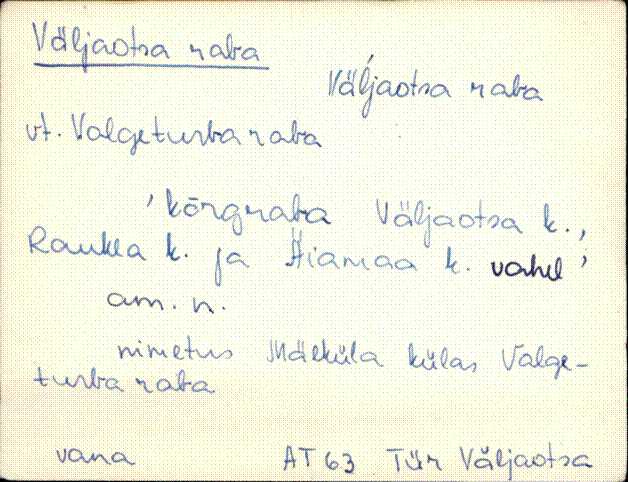 Väljaotsa raba
Väljaotsa raba
vt. Valgeturba raba
'kõrgraba Väljaotsa k.,
Raukla k. ja Äiamaa k. vahel'
am. n.
nimetus Mäeküla külas Valge-
turba raba
vana AT 63 Tür Väljaotsa